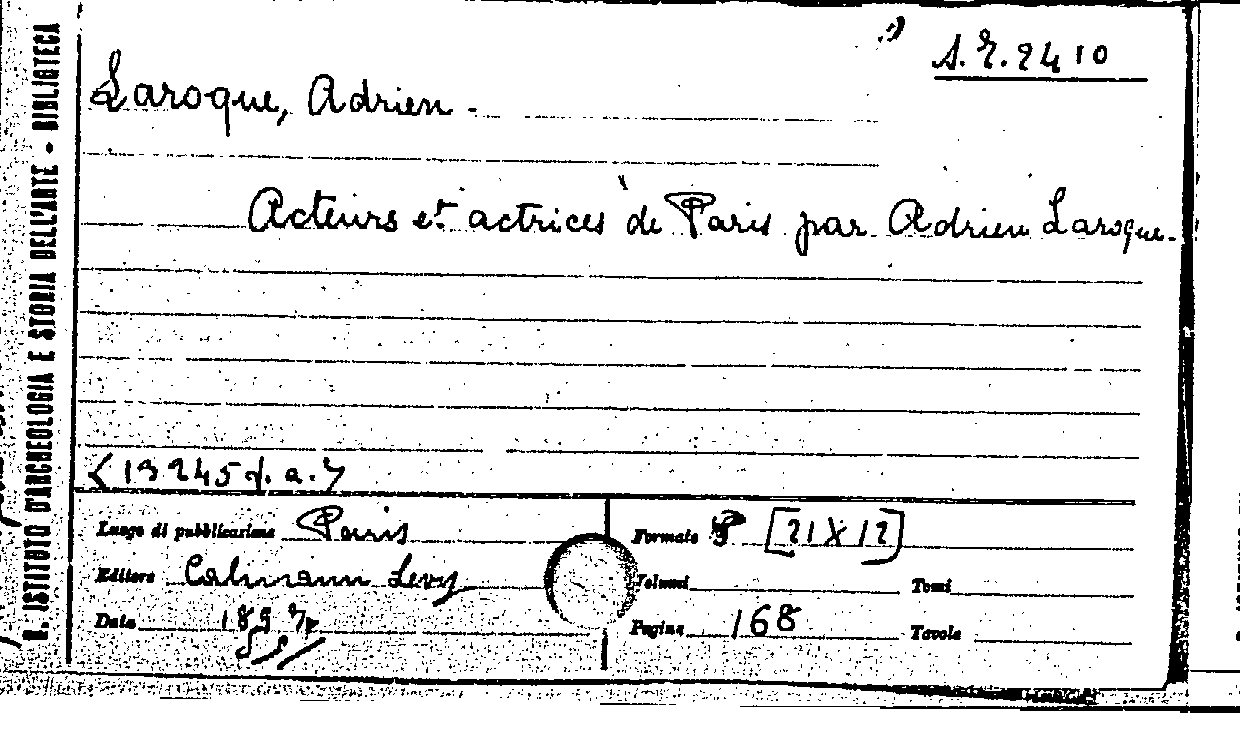 R. ISTITUTO D'ARCHEOLOGIA E STORIA DELL'ARTE - BIBLIOTECA
Laroque, Adrien.
Acteurs et actrices de Paris par Adrien Laroque.
Luogo di pubblicazione Paris
Formato [21X12]
Editore Calmann Levy
Volumi
Tomi
Data
Pagine 168
Tavole